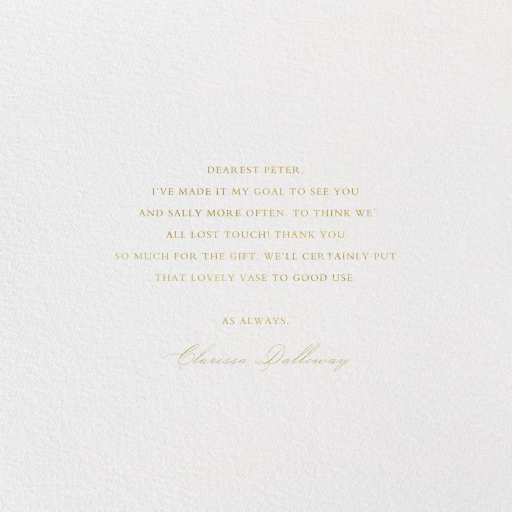 DEAREST PETER,
I'VE MADE IT MY GOAL TO SEE YOU
AND SALLY MORE OFTEN. TO THINK WE
ALL LOST TOUCH! THANK YOU
SO MUCH FOR THE GIFT; WE'LL CERTAINLY PUT
THAT LOVELY VASE TO GOOD USE.
AS ALWAYS,
Clarissa Dalloway